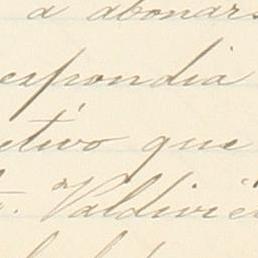 a abonars
espondia
etivo que
t. Valdivie